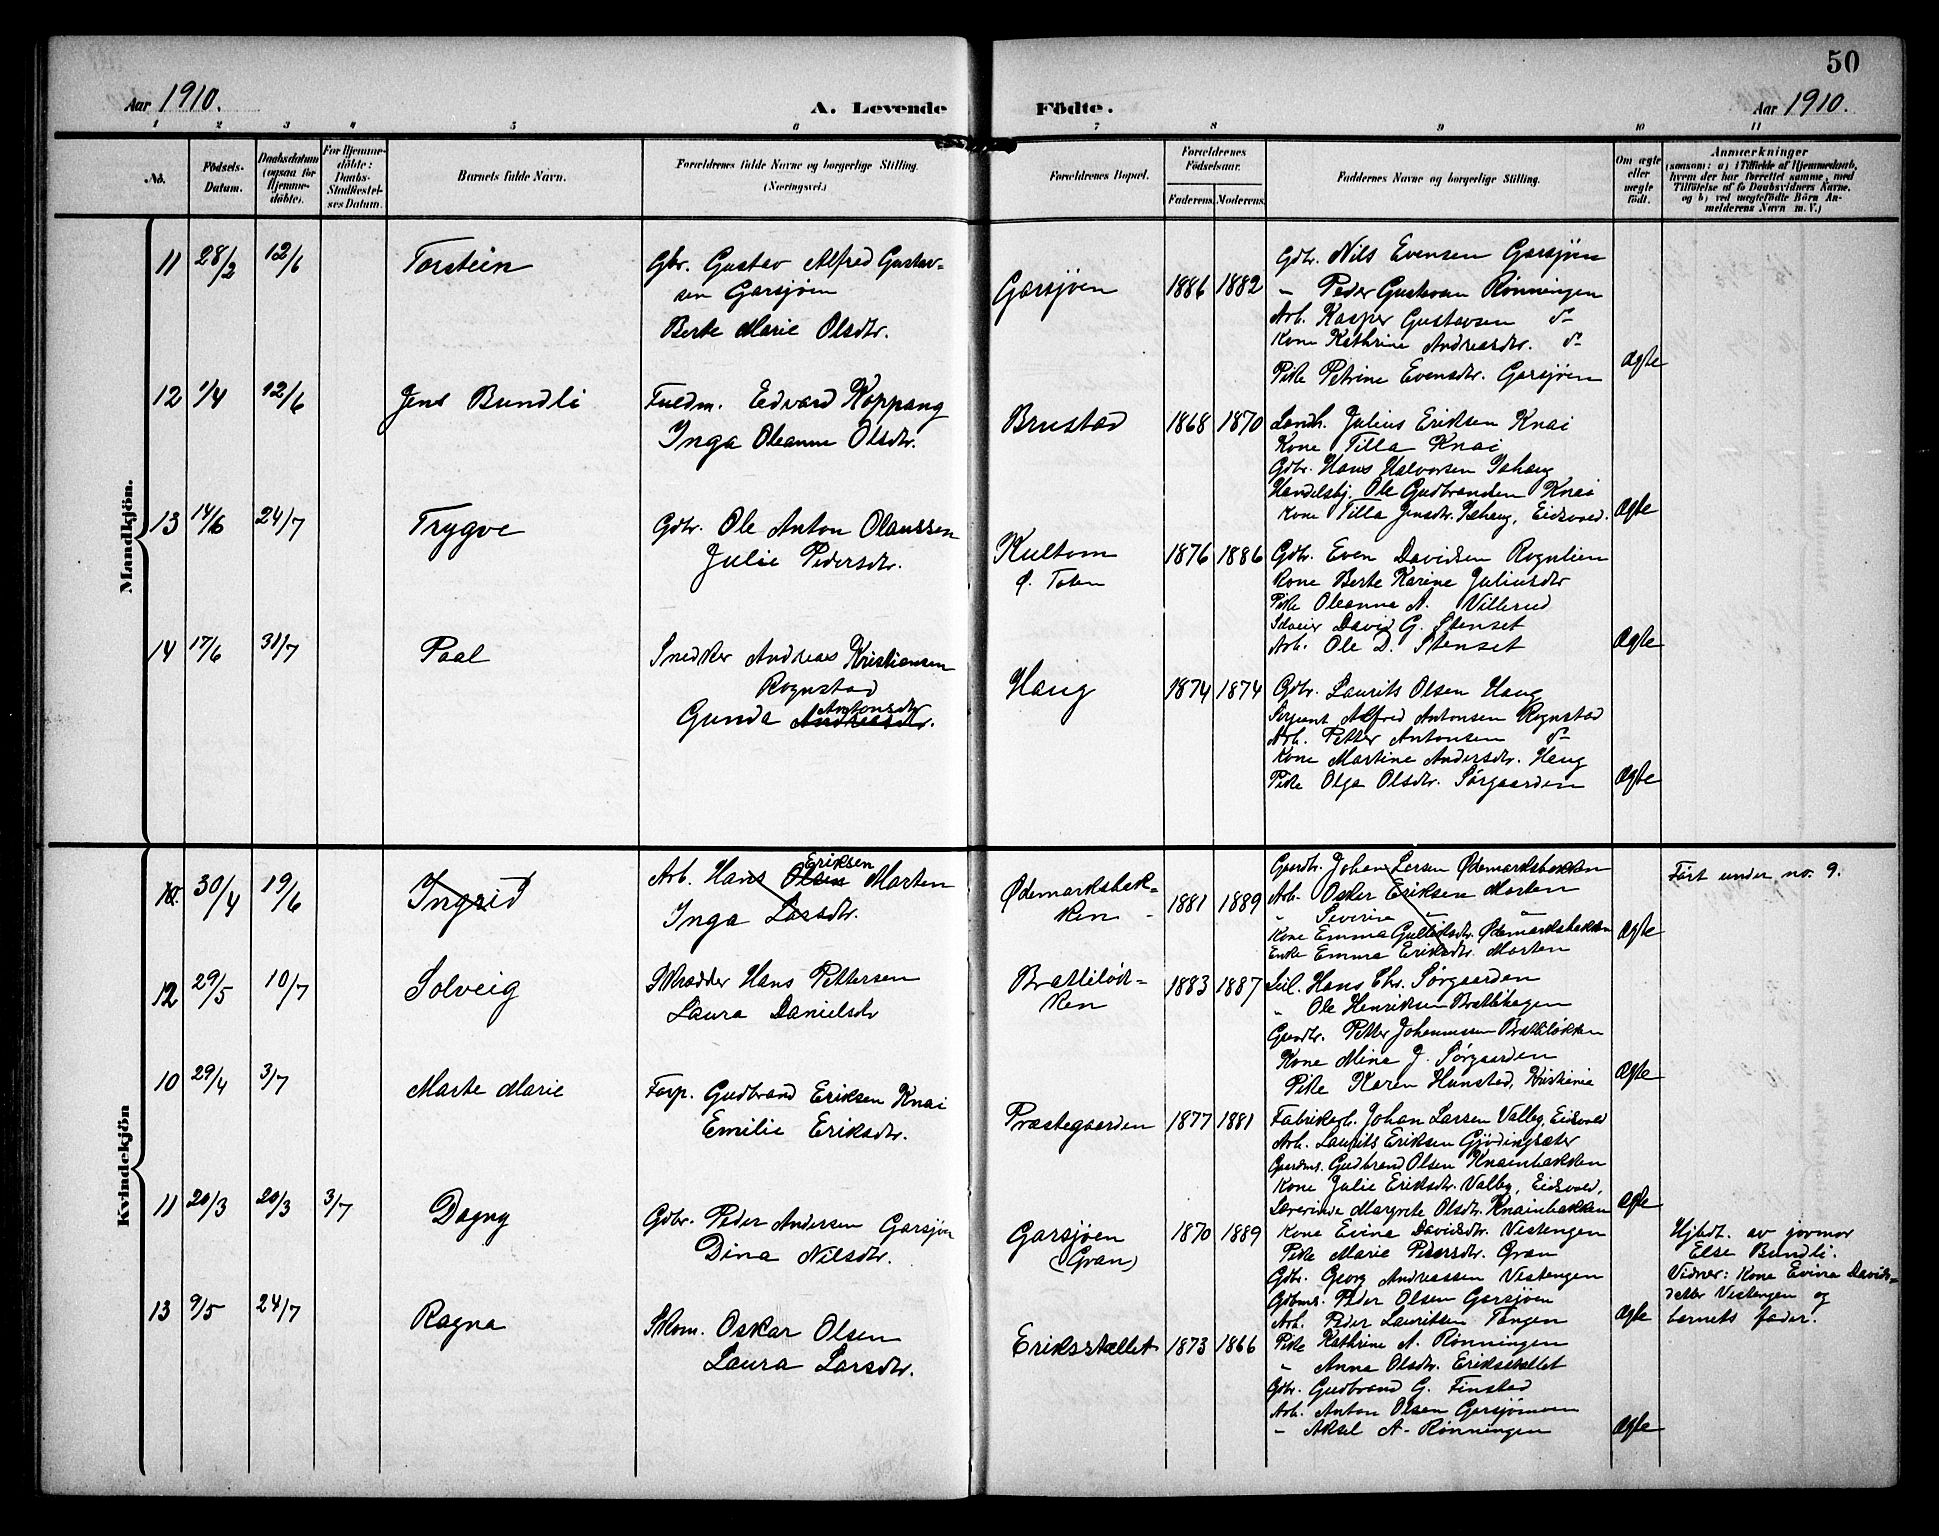 50
Aar 1910.
A. Levende Födte.
Aar 1910.
1 2 3 4 5 6 7 8 9 10 11
No.
Födsels-
Datum.
Daabsdatum
(ogsaa for
Hjemme-
döbte).
For Hjemme-
döbte:
Daabs-
Stadfæstel-
ses Datum.
Barnets fulde Navn.
Forældrenes fulde Navne og borgerlige Stilling.
(Næringsvei.)
Forældrenes Bopæl.
Forældrenes
Födselsaar.
Faderens. Moderens.
Faddernes Navne og borgerlige Stilling.
Om ægte
eller
uægte
født.
Anmærkninger
(saasom: a) i Tilfælde af Hjemmedaab,
hvem der har forrettet samme, med
Tilföielse af to Daabsvidners Navne,
og b) ved uægtefödte Börn An-
melderens Navn m. V.)
Mandkjön.
11 28/2 12/6 Torstein
Gbr. Gustav Alfred Gustav-
sen Garsjøen
Berte Marie Olsdtr.
Garsjøen 1886 1882
Gdbr. Nils Evensen Garsjøen
" Peder Gustavsen Rønningen
Arb. Kasper Gustavsen do
Kone Kathrine Andreasdtr. do
Pike Petrine Evensdtr. Garsjøen
Ægte
12 1/4 12/6 Jens Bundli
Fuldm. Edvard Koppang
Inga Oleanne Olsdtr.
Brustad 1868 1870
Landh. Julius Eriksen Knai
Kone Tilla Knai
Gdbr. Hans Halvorsen
Handelsbj. Ole Gudbrandsen Knai
Kone Tilla Jensdtr. Eidsvold.
Ægte
13 14/6 24/7 Trygve
Gdbr. Ole Anton Olaussen
Julie Pedersdtr.
Kultom
Ø. Toten
1876 1886
Gdbr. Even Davidsen Rognlien
Kone Berte Karine Juliusdtr
Pike Oleanna A. Villerud
Selveier David G. Stenset
Arb. Ole D. Stenset
Ægte
14 17/6 31/7 Paal
Snedker Andreas Kristiansen
Rognstad
Antonsdtr
Gunda Andreasdtr.
Haug 1874 1874
Gdbr. Laurits Olsen Haug
Serjeant Alfred Antonsen Rognstad
Arb. Petter Antonsen do
Kone Martine Andersdtr. Haug
Pike Olga Olsdtr. Sørgaarden
Ægte
Kvindekjön
10 30/4 19/6 Ingrid
Eriksen
Arb. Hans Olsen Marten
Inga Larsdtr.
Ødemarksbak-
ken
1881 1889
Gaardbr. Johan Larsen Ødemarksbakken
Arb. Oskar Eriksen Marten
" Severin " "
Kone Emma Gulliksdtr. Ødemarksbakken
Enke Emma Eriksdtr. Marten
Ægte
Ført under no. 9.
12 29/5 10/7 Solveig
Skrædder Hans Pettersen
Laura Danielsdtr
Brattiløk-
ken
1883 1887
Leil. Hans Chr. Sørgaarden
" Ole Henriksen Brattehagen
Gaardbr. Petter Johannessen Bratliløkken
Kone Mina J. Sørgaarden
Pike Karen Hunstad, Kristiania
Ægte
10 29/4 3/7 Marte Marie
Forp. Gudbrand Eriksen Knai
Emilie Eriksdtr.
Præstegaarden 1877 1881
Fabrikarb. Johan Larsen Valby, Eidsvold
Arb. Laurits Eriksen Gjødingsæter
Gaardms. Gudbrand Olsen Knainbakken
Kone Julie Eriksdtr. Valby, Eidsvold,
Lærerinde Margrete Olsdtr. Knainbakken
Ægte
11 20/3 20/3 3/7 Dagny
Gdbr. Peder Andersen Garsjøen
Dina Nilsdtr.
Garsjøen
(Gran)
1870 1889
Kone Evina Davidsdtr. Vestengen
Pike Marie Pedersdtr. Gran
Gdbr. Georg Andreassen Vestengen
Gdbms. Peder Olsen Garsjøen
Arb. Peder Lauritsen Tangen
Ægte
Hjbdt. av jormor
Else Bundli.
Vidner: Kone Evina Davids-
datter Vestengen og
barnets fader.
13 9/5 24/7 Ragna
Skom. Oskar Olsen
Laura Larsdtr.
Eriksstallet 1873 1866
Pike Kathrine A. Rønningen
" Anna Olsdtr. Eriksstallet
Gdbr. Gudbrand G. Finstad
Arb. Anton Olsen Garsjømoen
" Aksel A. Rønningen
Ægte